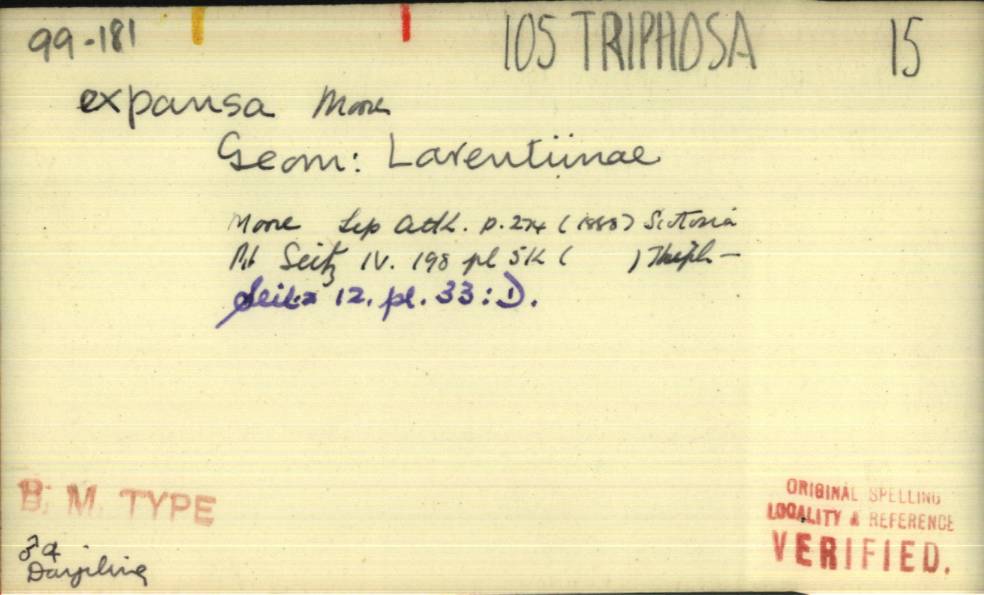 99-181 105 TRIPHOSA 15
expansa Moore
Geom: Larentiinae
Moore Lep Atk. p. 274 (1888) Scotosia
Pt Seitz IV. 198 pl 5K ( ) Triph-
Seitz 12. pl. 33: D.
B. M. TYPE
ORIGINAL SPELLING
LOCALITY & REFERENCE
VERIFIED.
♂ ♀
Darjiling